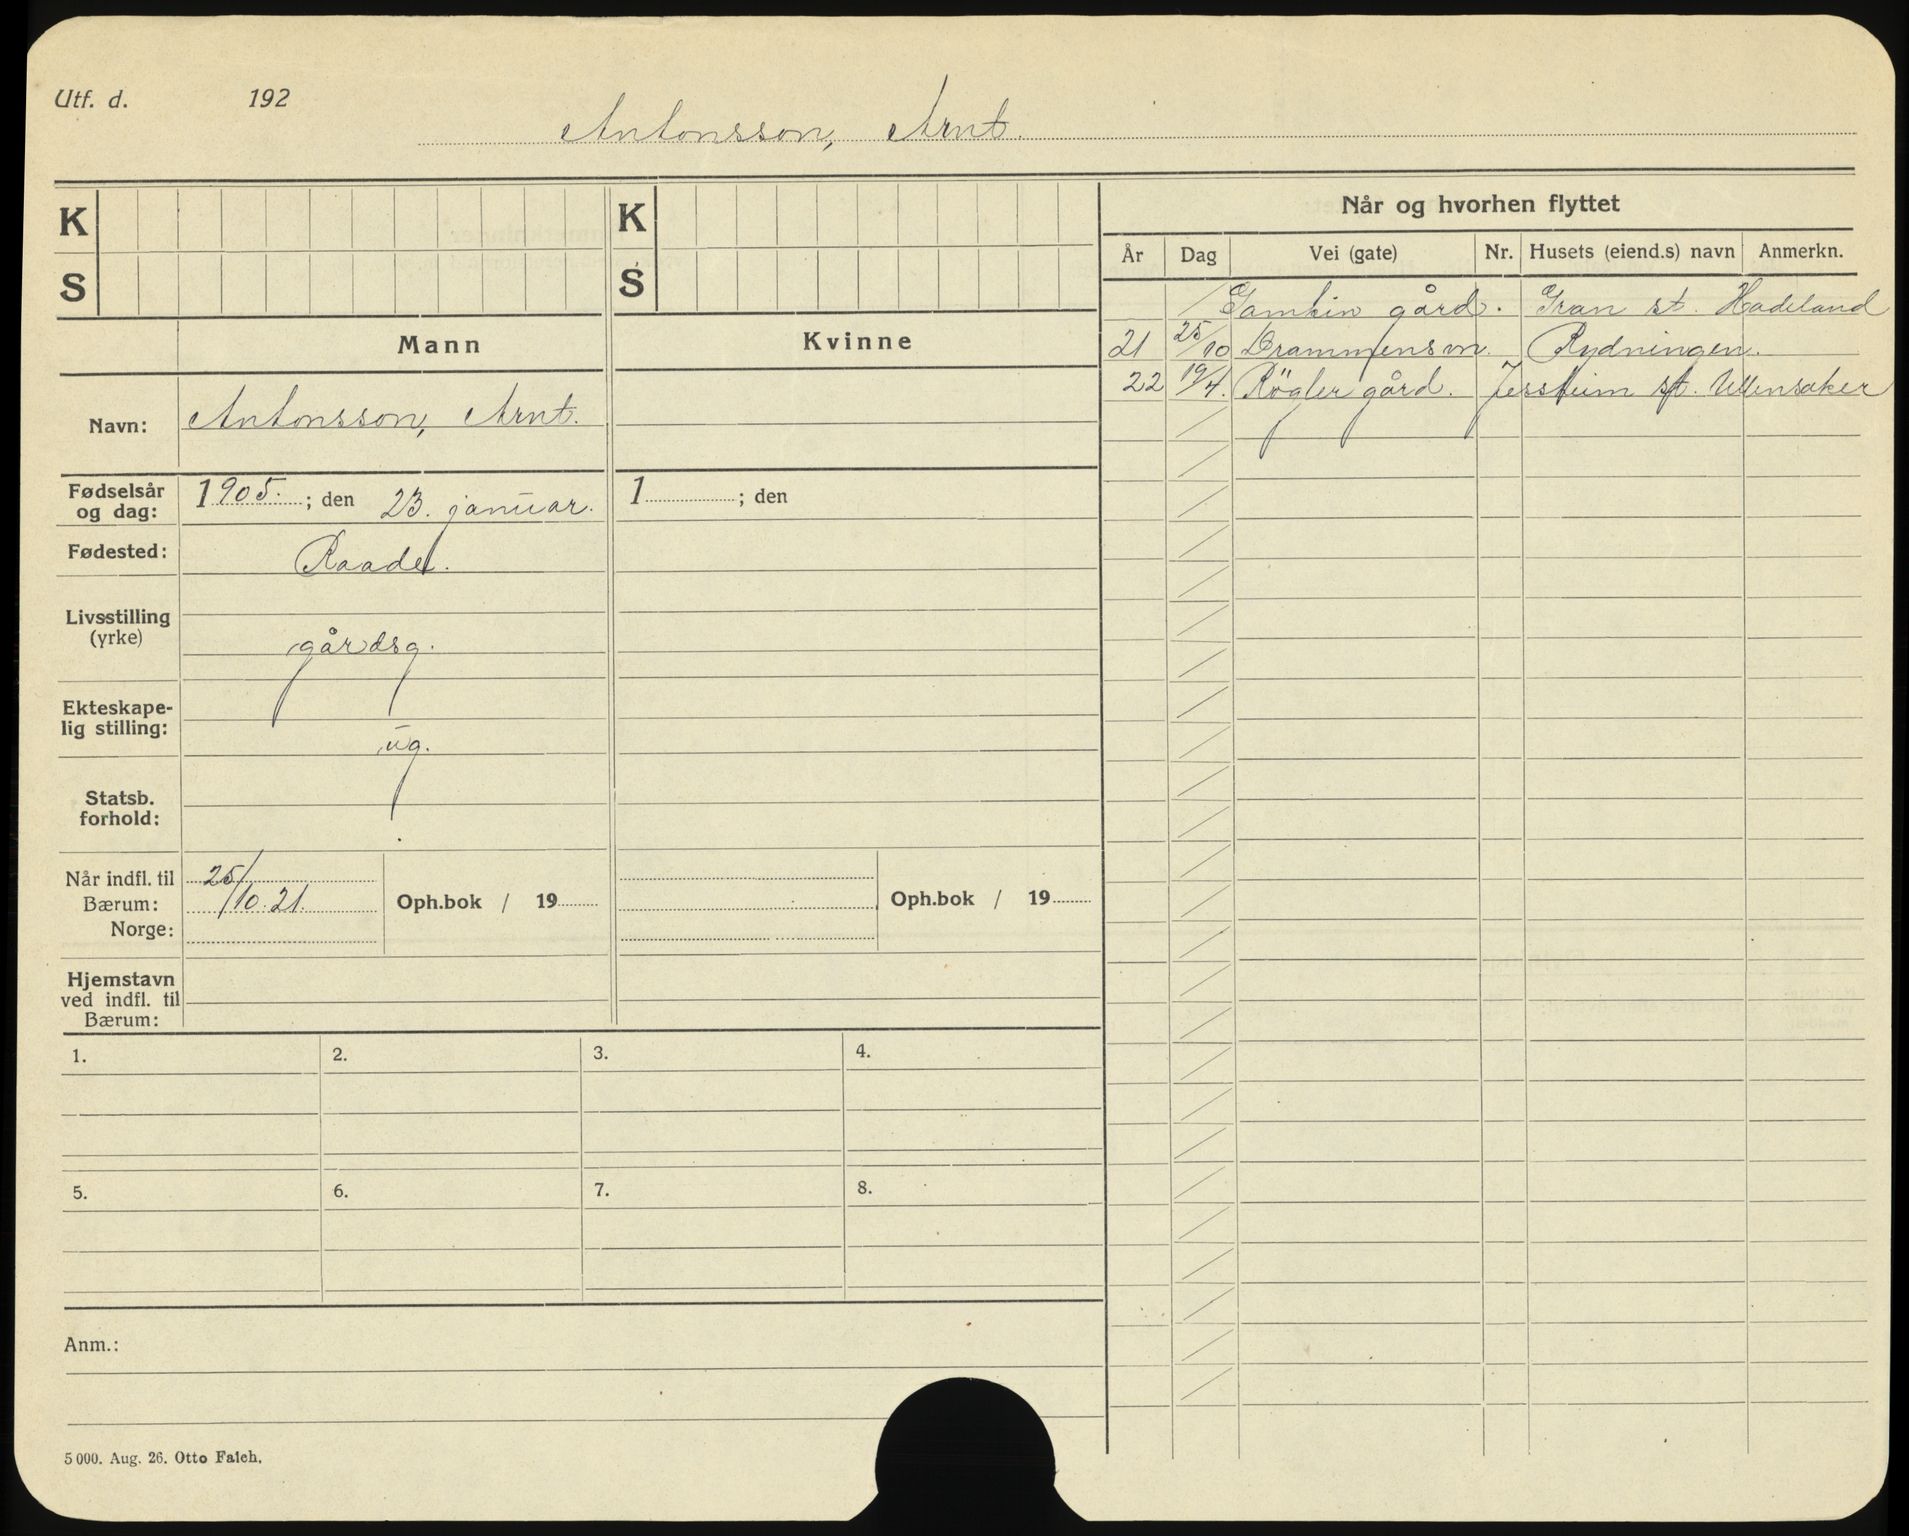 Utf. d. 192
Antonsson, Arnt.
K
S
K
S
Mann
Kvinne
Navn: Antonsson, Arnt.
Fødselsår og dag: 1905. ; den 23. januar.
1 ; den
Fødested: Raade.
Livsstilling (yrke) gårdsg.
Ekteskape-
lig stilling: ug.
Statsb.
forhold:
Når indfl. til 25/
Bærum: 10.21. Oph.bok / 19
Oph.bok / 19
Norge:
Hjemstavn
ved indfl. til
Bærum:
1. 2. 3. 4.
5. 6. 7. 8.
Anm.:
5 000. Aug. 26. Otto Falch.
Når og hvorhen flyttet
År Dag Vei (gate) Nr. Husets (eiend.s) navn Anmerkn.
/ gård. Gran st. Hadeland
21 25/10 Drammensvn. Rydningen.
22 19/4. Røgler gård. Jessheim st. Ullensaker